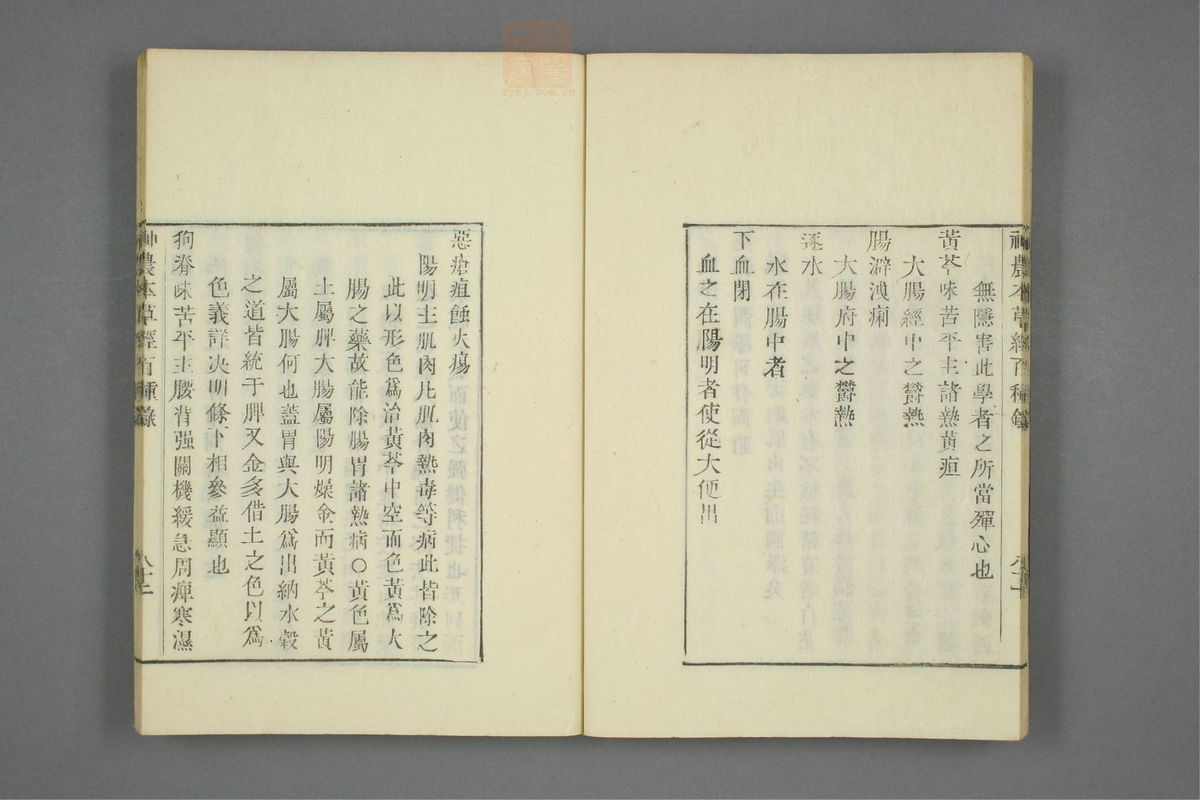 神農本草經百種錄
無隱害此學者之所當殫心也
黃芩味苦平主諸熱黃疸
大腸經中之欝熱
腸澼洩痢
大腸府中之欝熱
逐水
水在腸中者
下血閉
血之在陽明者使從大便出
惡瘡疽蝕火瘍
陽明主肌肉凡肌肉熱毒等病此皆除之
此以形色爲治黃芩中空而色黃爲大
腸之藥故能除腸胃諸熱病○黃色屬
土屬脾大腸屬陽明燥金而黃芩之黃
屬大腸何也蓋胃與大腸爲出納水穀
之道皆統于脾又金多借土之色以爲
色義詳決明條下相參益顯也
狗脊味苦平主腰背强關機緩急周痺寒濕
神農本草經百種錄
zysj.com.cn